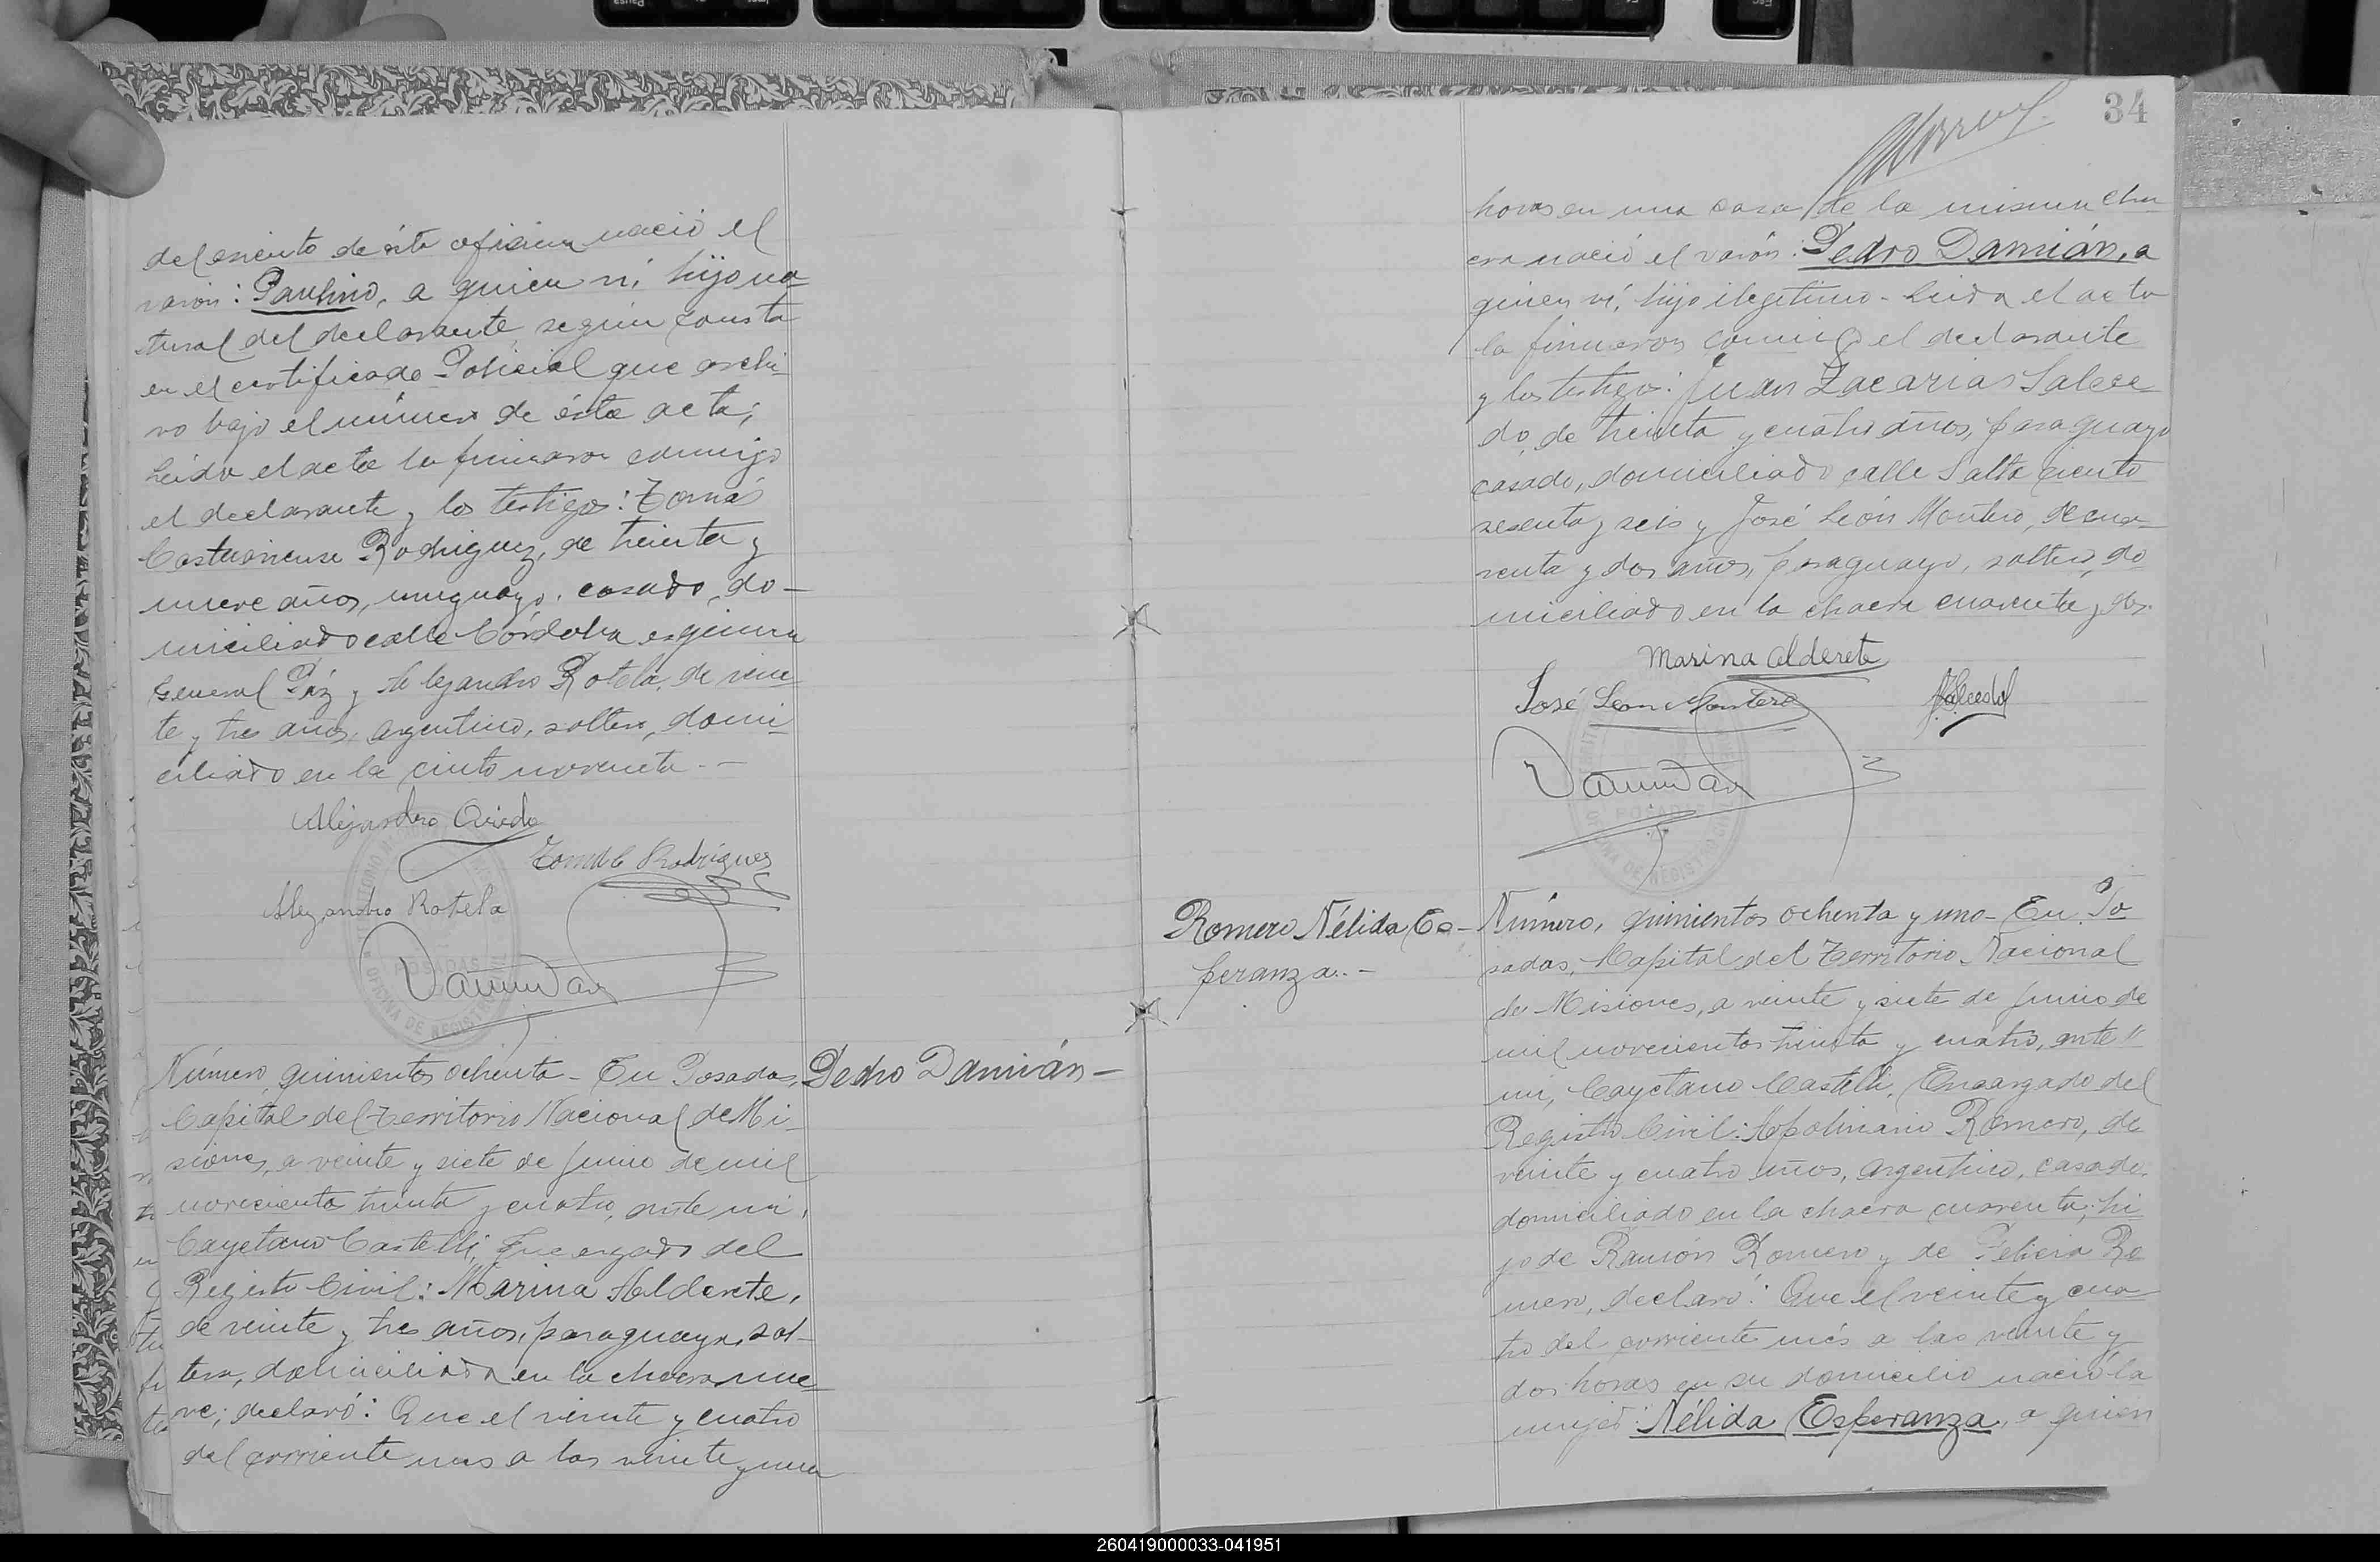 del asiento de ésta oficina nació el
varón: Paulino, a quien ví, hijo na-
tural del declarante, según consta
en el certificado Policial que archi-
vo bajo el número de ésta acta;
Leída el acta la firmaron conmigo
el declarante y los testigos: Tomás
Rodriguez, de treinta y
nueve años, uruguayo, casado, do-
miciliado calle Córdoba esquina
General Páz y Alejandro Rotela, de vein-
te y tres años, argentino, soltero, domi-
ciliado en la ciento noventa.-
Alejandro Oviedo
Rodrígues
Alejandro Rotela
POSADAS
OFICINA DE REGISTRO
Número, quinientos ochenta - En Posadas,
Capital del Territorio Nacional de Mi-
siones, a veinte y siete de Junio de mil
novecientos treinta y cuatro, ante mi,
Cayetano Castelli, Encargado del
Registro Civil: Marina Alderete,
de veinte y tres años, paraguaya, sol-
tera, domiciliada en la chacra nue-
ve; declaró: Que el veinte y cuatro
del corriente mes a las veinte y una
Pedro Damián-
34
horas en una casa de la misma cha-
cra nació el varón: Pedro Damián, a
quien ví, hijo ilegítimo - Leída el acta
la firmaron conmigo el declarante
y los testigos: Juan Zacarias Salce-
do, de treinta y cuatro años, paraguayo
casado, domiciliado calle Salta ciento
sesenta y seis y José León Montero, de cua-
renta y dos años, paraguayo, soltero, do-
miciliado en la chacra cuarenta y dos.
Marina Alderete
José Leon Montero
Salcedo
POSADAS
OFICINA DE REGISTRO
Romero Nélida Es-
peranza.-
Número, quinientos ochenta y uno- En Po-
sadas, Capital del Territorio Nacional
de Misiones, a veinte y siete de Junio de
mil novecientos treinta y cuatro, ante
mi, Cayetano Castelli, Encargado del
Registro Civil: Apolinario Romero, de
veinte y cuatro años, argentino, casado,
domiciliado en la chacra cuarenta; hi-
jo de Ramón Romero y de Felicia Ro-
mero, declaró: Que el veinte y cua-
tro del corriente més a las veinte y
dos horas en su domicilio nació la
mujer: Nélida Esperanza, a quien
260419000033-041951